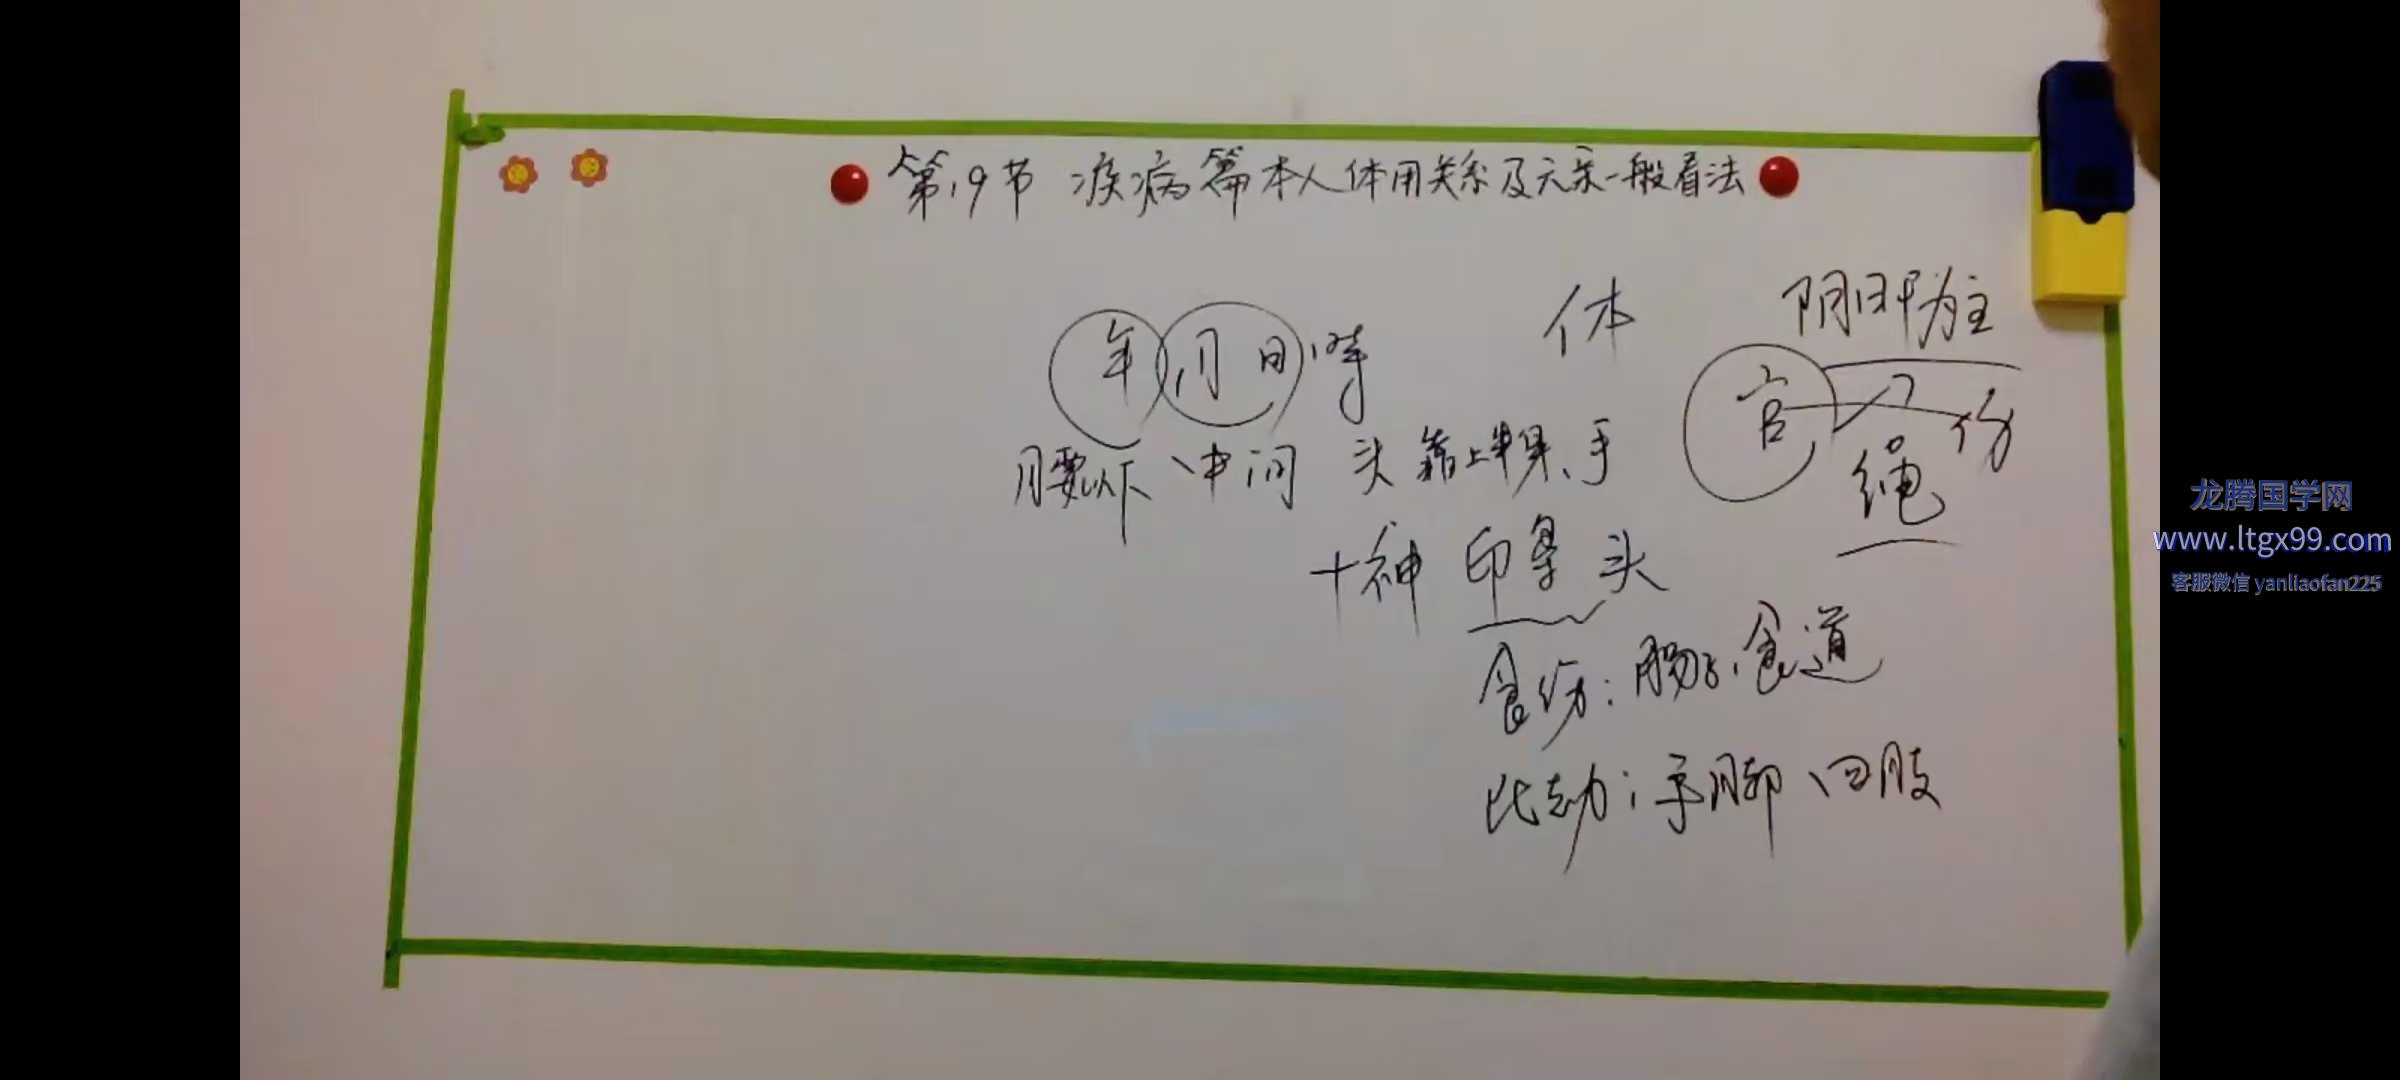 第19节 疾病篇本人体用关系及六亲一般看法
体
阴阳为主
年 月 日 时
官
伤
绳
腰以下、中间 头 靠上半身、手
十神 印星 头
食伤：肠子、食道
比劫：手脚、四肢
龙腾国学网
www.ltgx99.com
客服微信 yanliaofan225